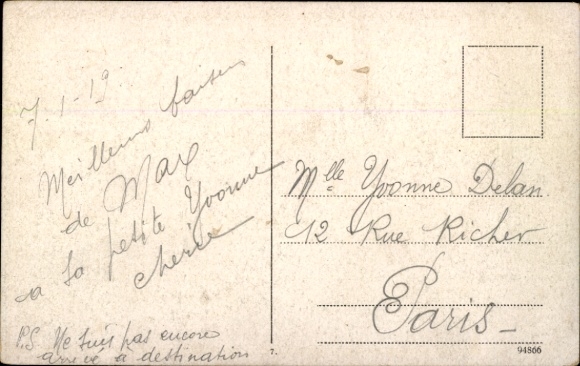 7-1-19.
Meilleurs baisers
de Max
a sa petite Yvonne
cherie
P.S. Ne suis pas encore
arrivé à destination
Mlle Yvonne Delan
12 Rue Richer
Paris_
7.
94866